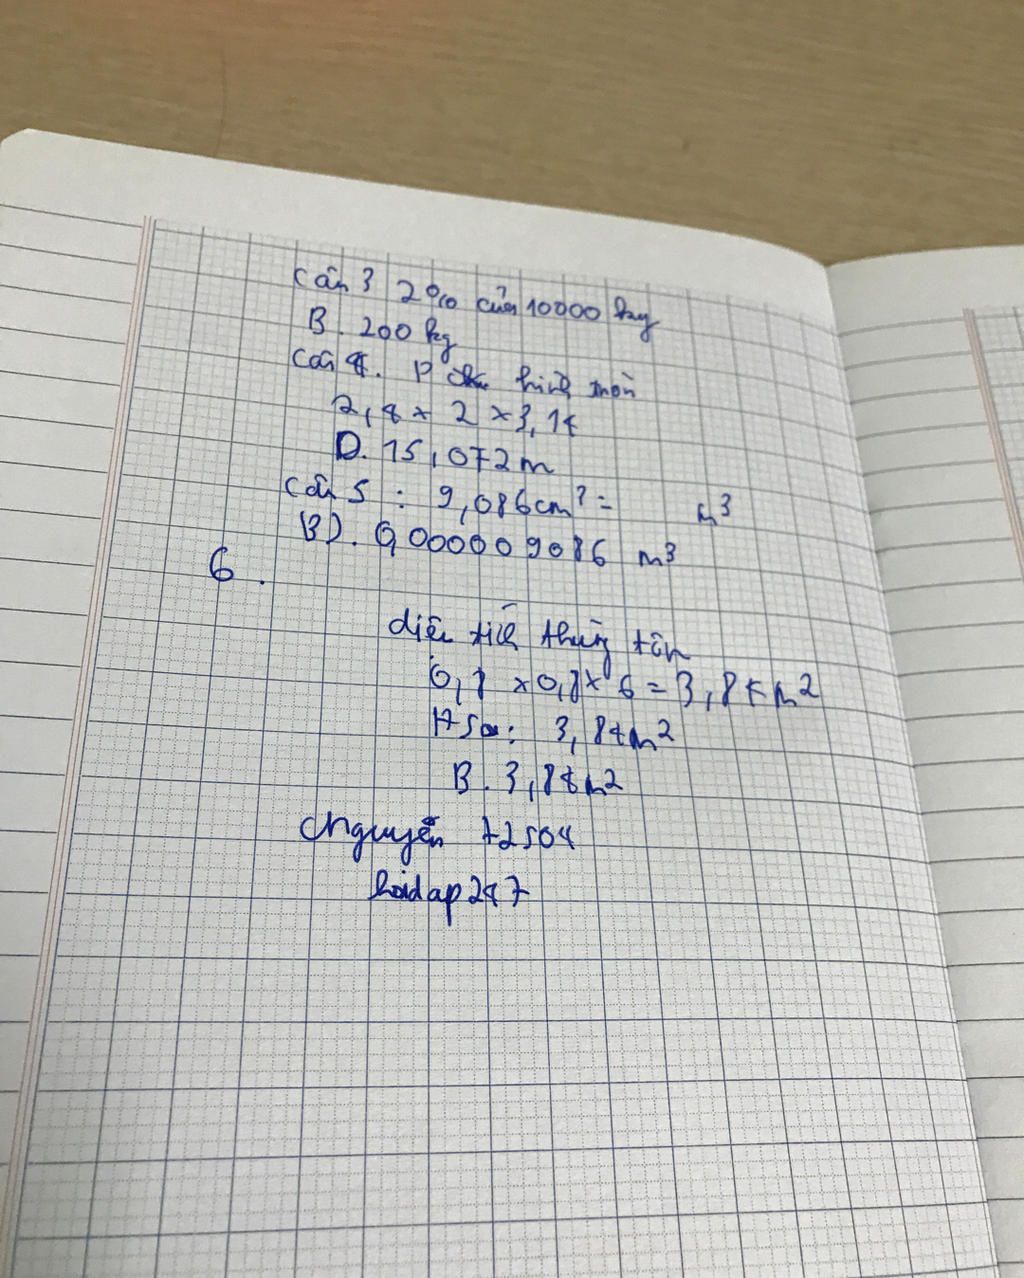 Câu 3 2% của 10000 kg
B. 200 kg
Câu 4. P hình tròn
2,4 × 2 × 3,14
D. 15,072 m
Câu 5 : 9,086cm³ = m³
B). 0,000009086 m³
6.
diện tích thùng tôn
0,8 × 0,8 × 6 = 3,84 m²
Đ Số: 3,84m²
B. 3,84m²
Nguyễn 72504
hoidap247